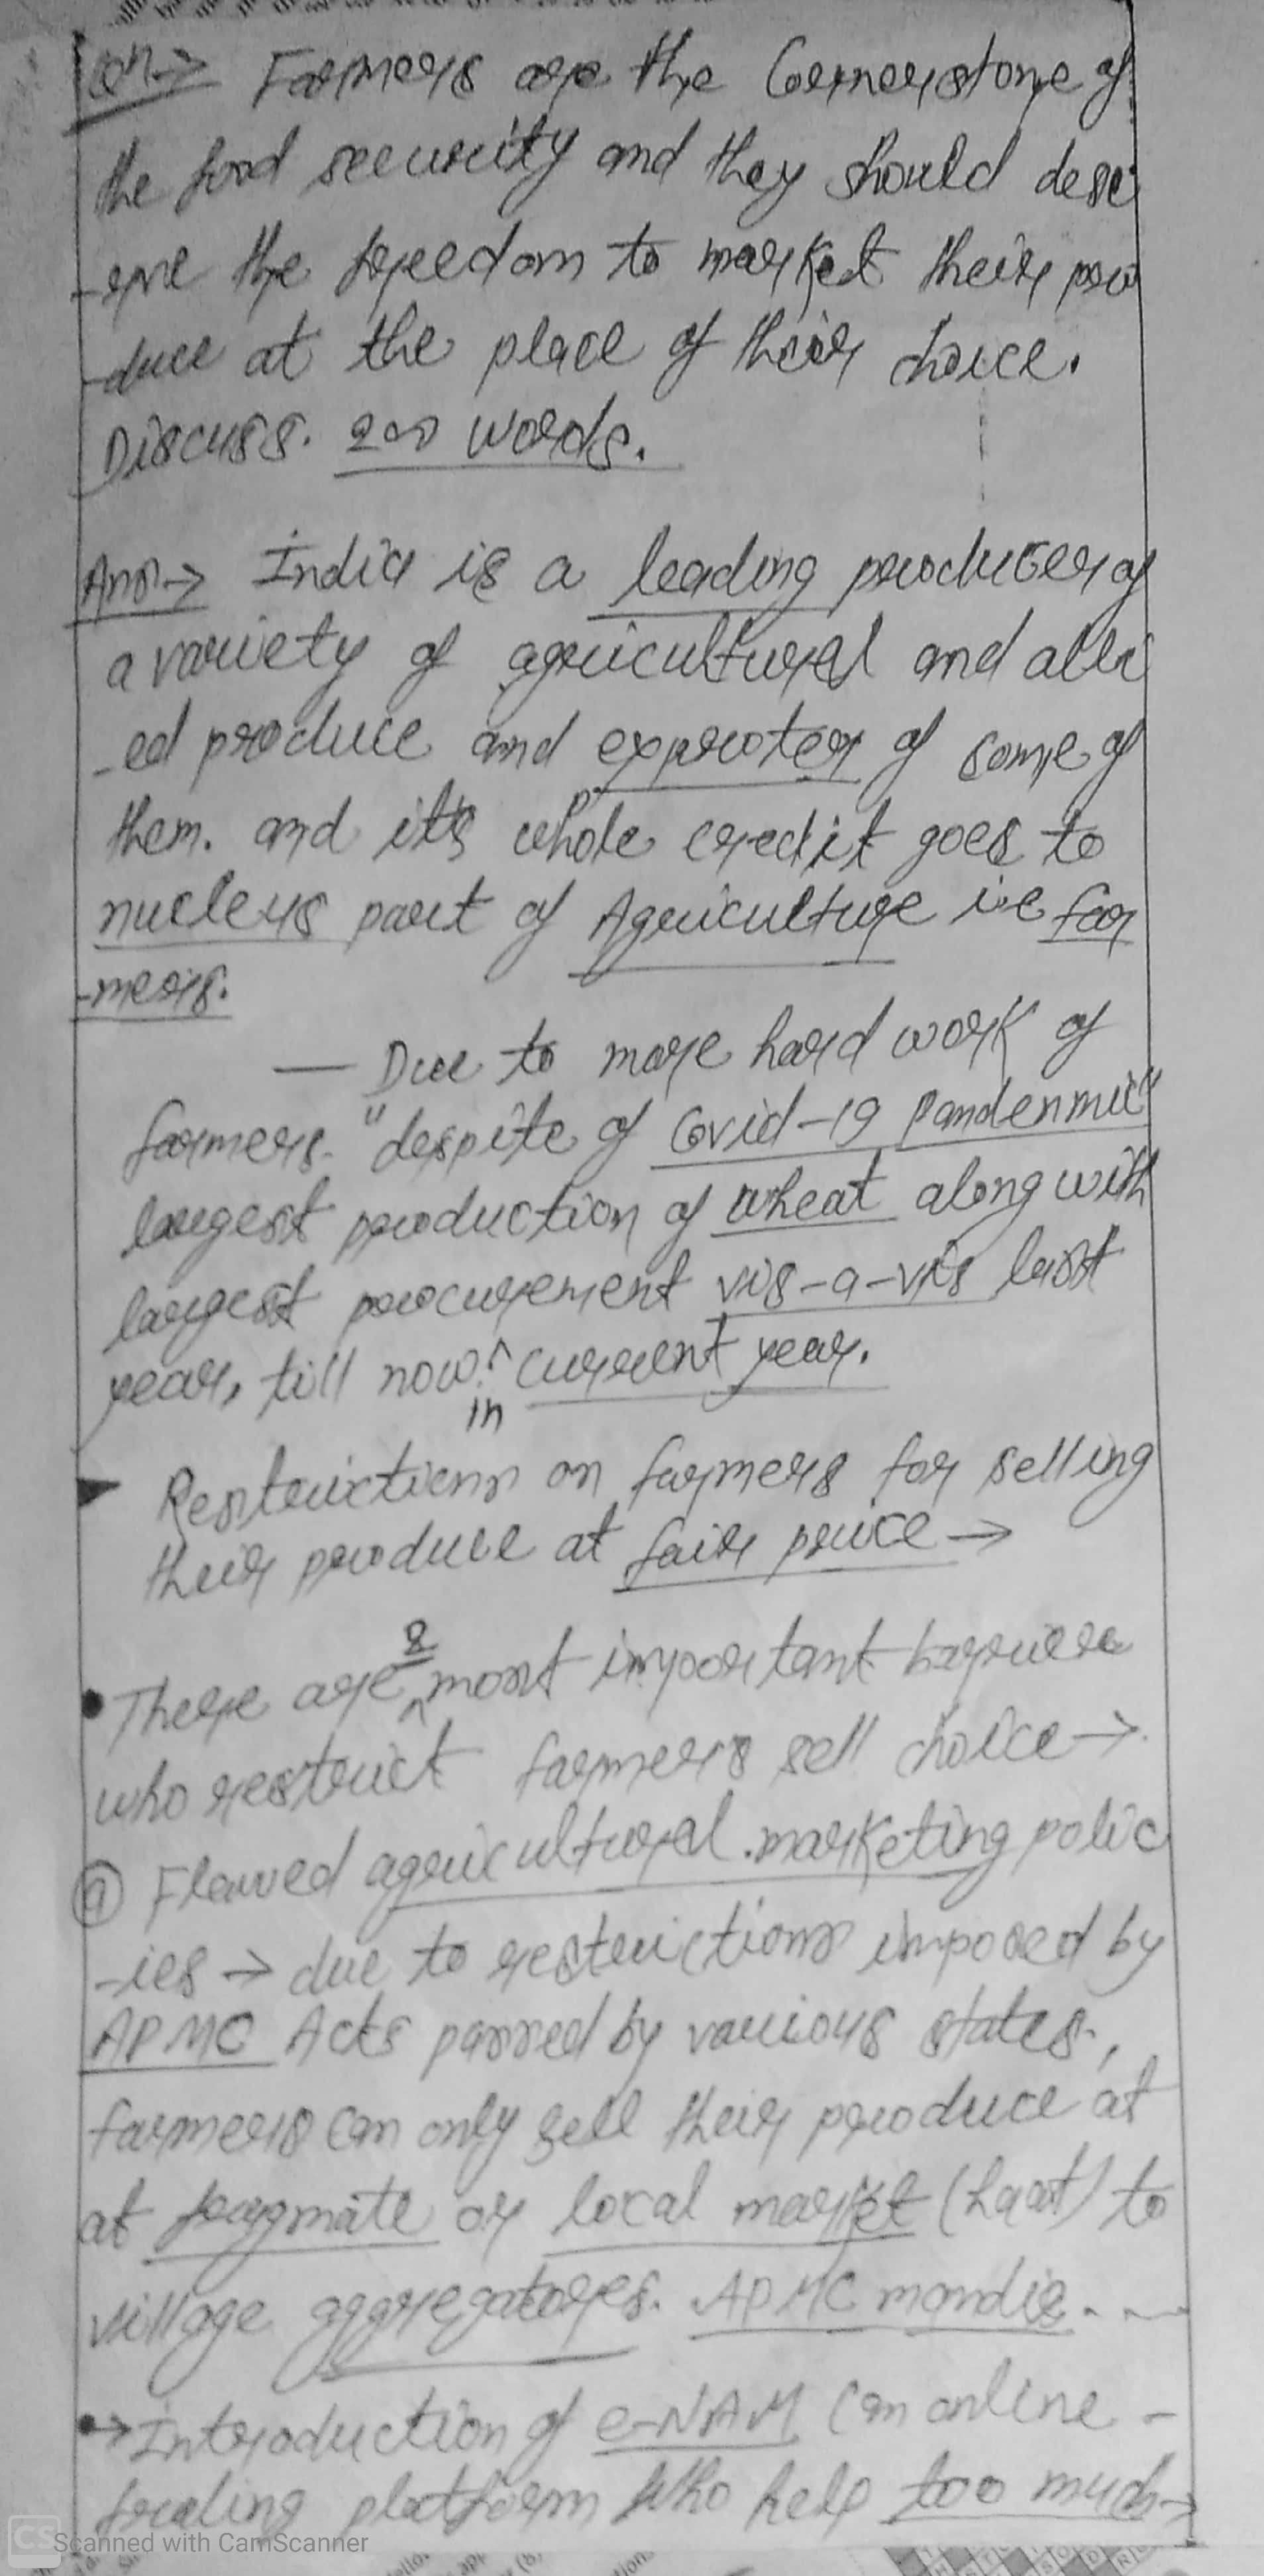 Qn→ Farmers are the Cornerstone of
the food security and they should dese
-erve the freedom to market their pro
-duce at the place of their choice.
Discuss. 200 words.
Ans→ India is a leading producer of
a variety of agricultural and alli
-ed produce and exproter of some of
them. and it's whole credit goes to
nucleus part of Agriculture i.e far
-mers.
— Due to more hard work of
farmers. "despite of Covid-19 Pandenmic"
largest production of wheat along with
largest procurement vis-a-vis last
year, till now in current year.
Restrictions on farmers for selling
their produce at fair price →
• There are 2 most important barriers
who restrict farmers sell choice →.
(a) Flawed agricultural marketing polic
-ies → due to restrictions imposed by
APMC Acts passed by various states,
farmers can only sell their produce at
at or local market (haat) to
village aggregatores. APMC mandis.
•→ Introduction of e-NAM (an online -
trading platform who help too much→
CS Scanned with CamScanner